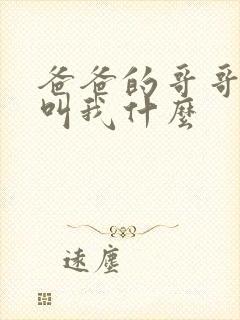 爸爸的哥哥
叫我什麼
遠塵